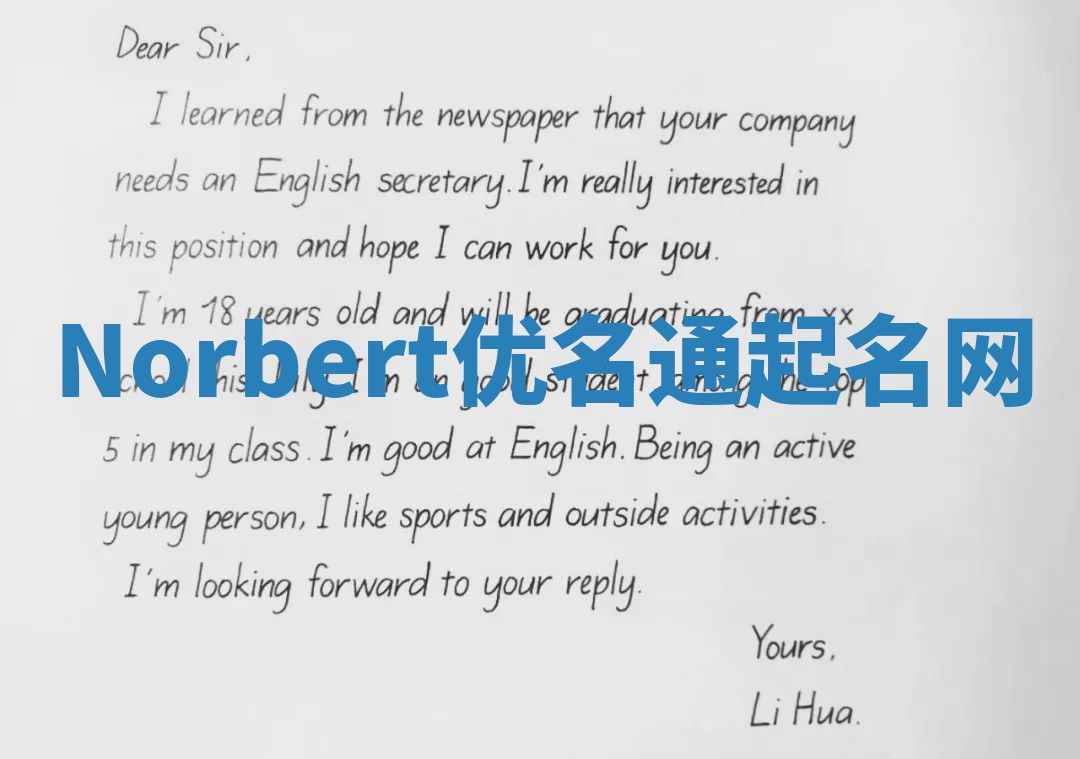 Dear Sir,
I learned from the newspaper that your company
needs an English secretary. I'm really interested in
this position and hope I can work for you.
I'm 18 years old and will be graduating from xx
Norbert优名通起名网
this July. I'm good student, among the top
5 in my class. I'm good at English. Being an active
young person, I like sports and outside activities.
I'm looking forward to your reply.
Yours,
Li Hua.